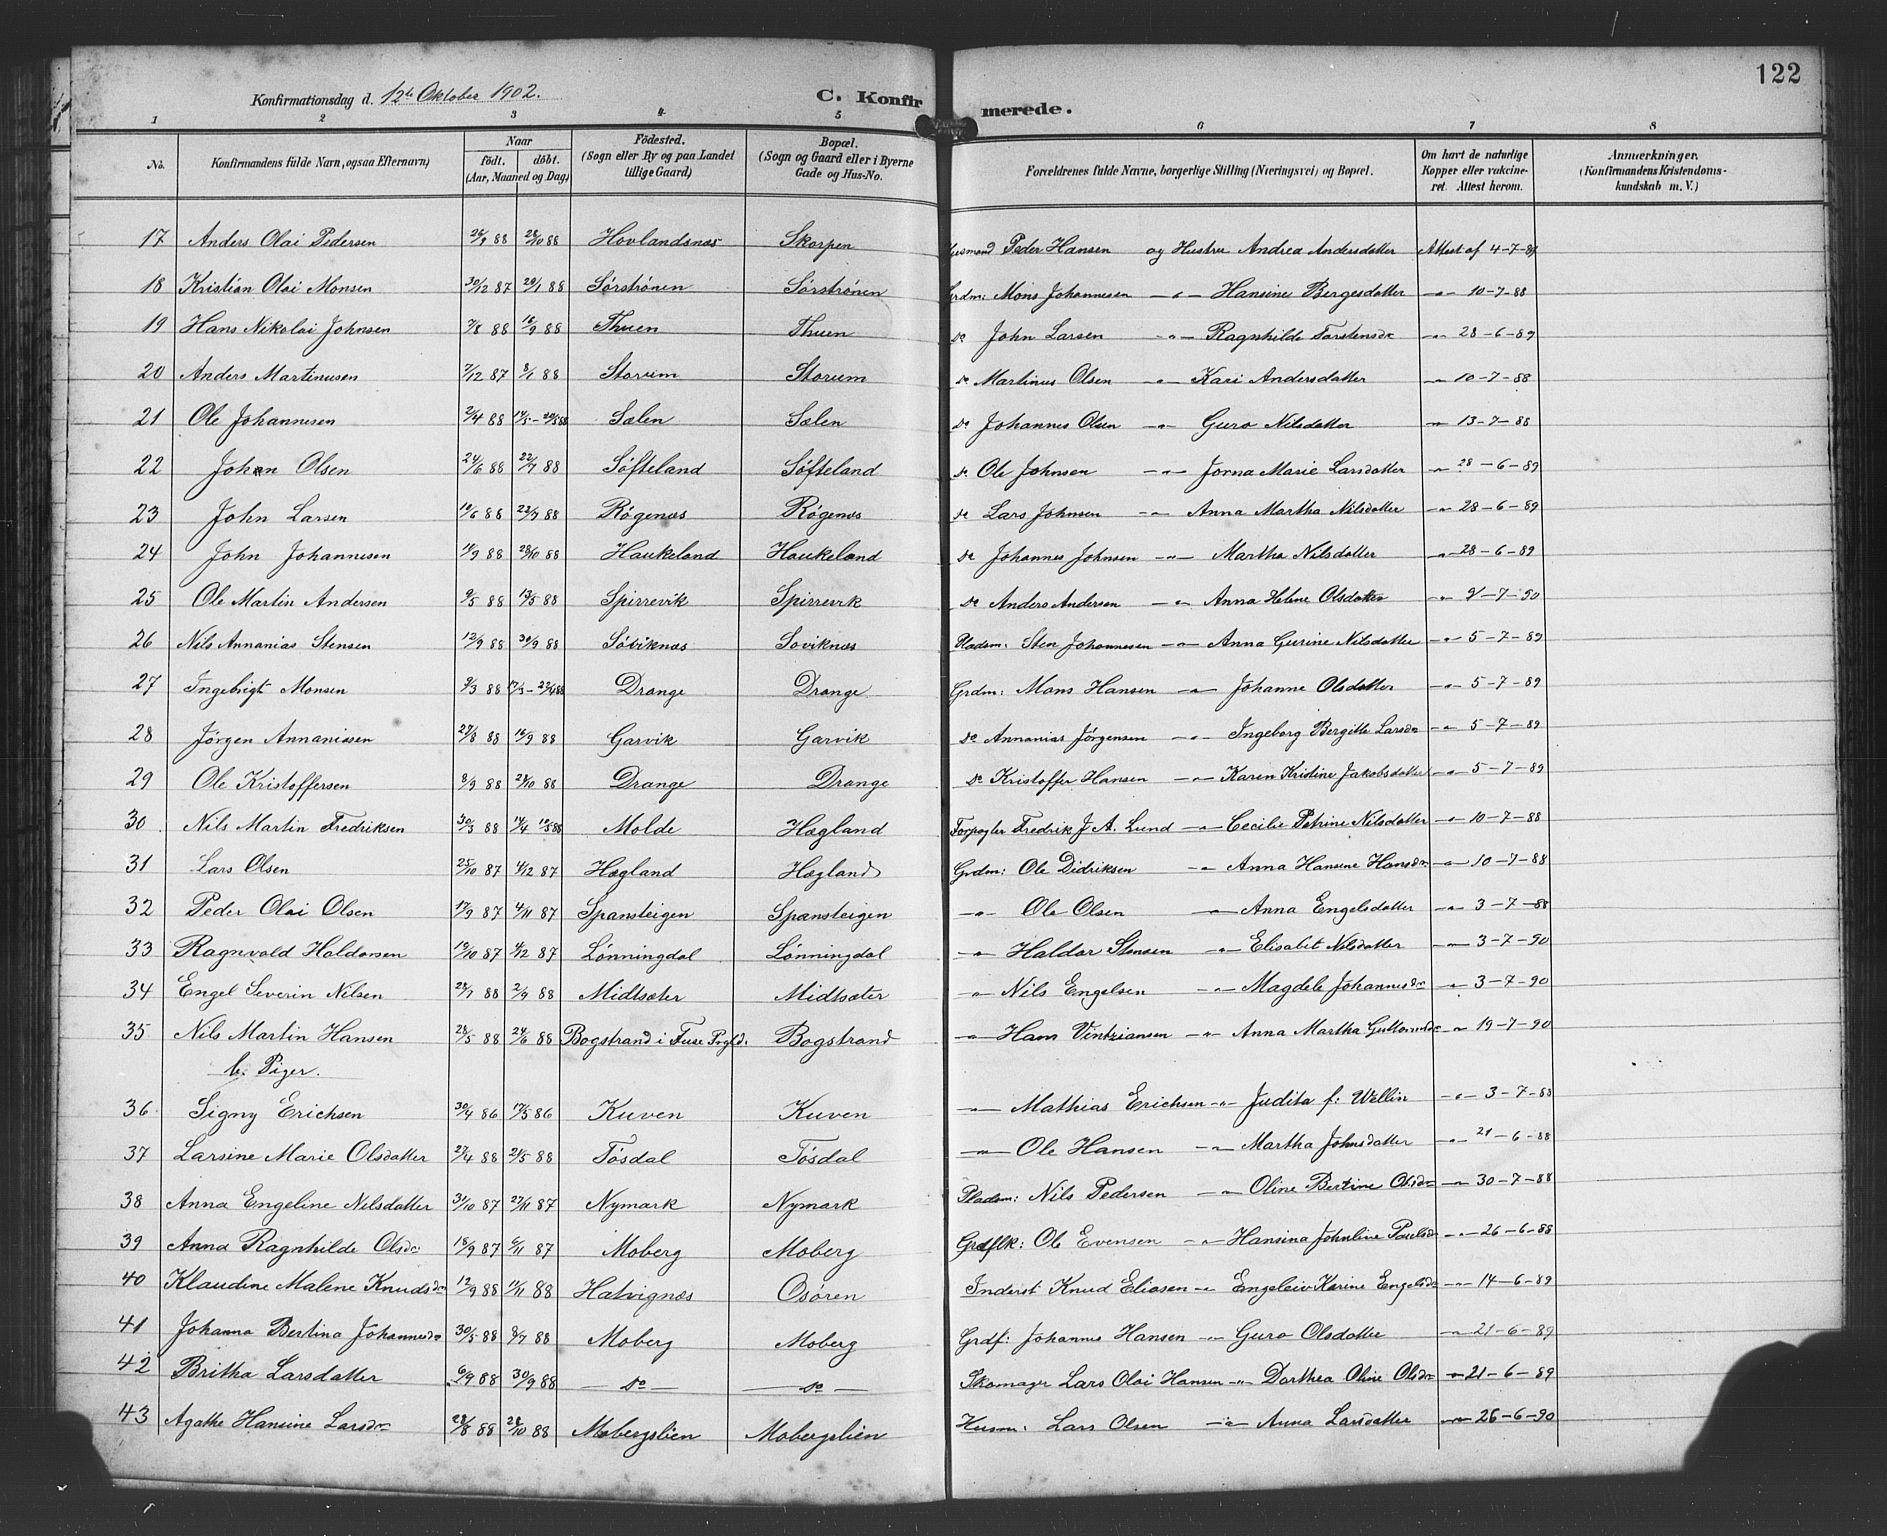 122
Konfirmationsdag d. 12te Oktober 1902. C. Konfirmerede.
1 2 3 4 5 6 7 8
No. Konfirmandens fulde Navn, ogsaa Efternavn) Naar födt. döbt. (Aar, Maaned og Dag) Födested. (Sogn eller By og paa Landet tillige Gaard) Bopæl. (Sogn og Gaard eller i Byerne Gade og Hus-No. Forældrenes fulde Navne, borgerlige Stilling (Næringsvei) og Bopæl. Om havt de naturlige Kopper eller vakcineret. Attest herom. Anmærkninger. (Konfirmandens Kristendomskundskab m. V.)
17 Anders Olai Pedersen 26/9 88 28/10 88 Hovlandsnæs Skorpen Husmand Peder Hansen og Hustru Andrea Andersdatter Attest af 4-7-89
18 Kristian Olai Monsen 30/12 87 29/1 88 Sörströnen Sörströnen Grdm: Mons Johannesen -"- Hansine Bergesdatter -"- 10-7-88
19 Hans Nikolai Johnsen 7/8 88 16/9 88 Thuen Thuen do John Larsen -"- Ragnhilde Torstensdr -"- 28-6-89
20 Anders Martinusen 7/12 87 8/1 88 Storum Storum do Martinus Olsen -"- Kari Andersdatter -"- 10-7-88
21 Ole Johannesen 2/4 88 17/5-20/5 88 Sælen Sælen do Johannes Olsen -"- Guro Nilsdatter -"- 13-7-88
22 Johan Olsen 24/6 88 22/7 88 Söfteland Söfteland do Ole Johnsen -"- Jorna Marie Larsdatter -"- 28-6-89
23 John Larsen 10/6 88 22/7 88 Rögenæs Rögenæs do Lars Johnsen -"- Anna Martha Nilsdatter -"- 28-6-89
24 John Johannesen 11/9 88 28/10 88 Haukeland Haukeland do Johannes Johnsen -"- Martha Nilsdatter -"- 28-6-89
25 Ole Martin Andersen 9/5 88 13/5 88 Spirrevik Spirrevik do Anders Andersen -"- Anna Helene Olsdatter -"- 9-7-90
26 Nils Annanias Stensen 12/9 88 30/9 88 Söviknæs Soviknæs Pladsm: Sten Johannesen -"- Anna Gurine Nilsdatter -"- 5-7-89
27 Ingebrigt Monsen 9/3 88 17/3-22/4 88 Drange Drange Grdm: Mons Hansen -"- Johanne Olsdatter -"- 5-7-89
28 Jörgen Annaniasen 27/8 88 16/9 88 Garvik Garvik do Annanias Jörgensen -"- Ingeborg Bergitte Larsdr -"- 5-7-89
29 Ole Kristoffersen 8/9 88 28/10 88 Drange Drange do Kristoffer Hansen -"- Karen Kristine Jakobsdatter -"- 5-7-89
30 Nils Martin Fredriksen 30/3 88 14/4 10/5 88 Molde Hægland Forpagter Fredrik J. A. Lund -"- Cecilie Petrine Nilsdatter -"- 10-7-88
31 Lars Olsen 25/10 87 4/12 87 Hægland Hægland Grdm: Ole Didriksen -"- Anna Hansine Hansdr -"- 10-7-88
32 Peder Olai Olsen 17/9 87 4/11 87 Spansteigen Spansteigen -"- Ole Olsen -"- Anna Engelsdatter -"- 3-7-88
33 Ragnvald Haldorsen 19/10 87 4/12 87 Lönningdal Lönningdal -"- Haldor Stensen -"- Elisabet Nilsdatter -"- 3-7-90
34 Engel Severin Nilsen 28/7 88 2/9 88 Midtsæter Midtsæter -"- Nils Engelsen -"- Magdele Johannesdr -"- 3-7-90
35 Nils Martin Hansen 28/5 88 24/6 88 Bogstrand i Fuse Prgld. Bogstrand -"- Hans Vintziansen -"- Anna Martha Guttormsdr -"- 19-7-90
b. Piger.
36 Signy Erichsen 30/4 86 17/5 86 Kuven Kuven -"- Mathias Erichsen -"- Judita f: Wellin -"- 3-7-88
37 Larsine Marie Olsdatter 27/4 88 21/5 88 Tösdal Tösdal -"- Ole Hansen -"- Martha Johnsdatter -"- 21-6-88
38 Anna Engeline Nilsdatter 31/10 87 27/11 87 Nymark Nymark Pladsm: Nils Pedersen -"- Oline Bertine Olsdr -"- 30-7-88
39 Anna Ragnhilde Olsdr 18/9 87 6/11 87 Moberg Moberg Grdflk: Ole Evensen -"- Hansina Johnline Paulsdr -"- 26-6-88
40 Klaudine Malene Knudsdr 12/9 88 11/11 88 Hatvignæs Osören Inderst Knud Eliasen -"- Engeleiv Karine Engelsdr -"- 14-6-89
41 Johanna Bertina Johannesdr 30/5 88 8/7 88 Moberg Moberg Grdf: Johannes Hansen -"- Guro Olsdatter -"- 21-6-89
42 Britha Larsdatter 6/9 88 30/9 88 -do- -do- Skomager Lars Olai Hansen -"- Dorthea Oline Olsdr -"- 21-6-89
43 Agathe Hansine Larsdr 28/8 88 28/10 88 Mobergslien Mobergslien Husm: Lars Olsen -"- Anna Larsdatter -"- 26-6-90